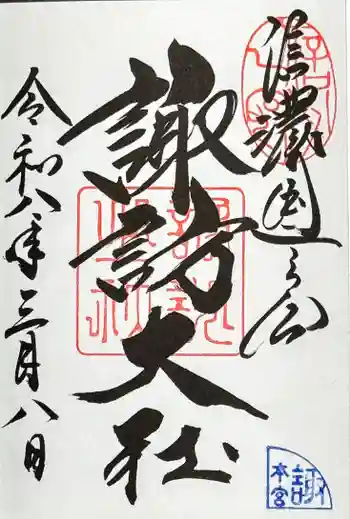 信濃國一之宮
諏訪大社
令和八年三月八日
諏訪大社
本宮